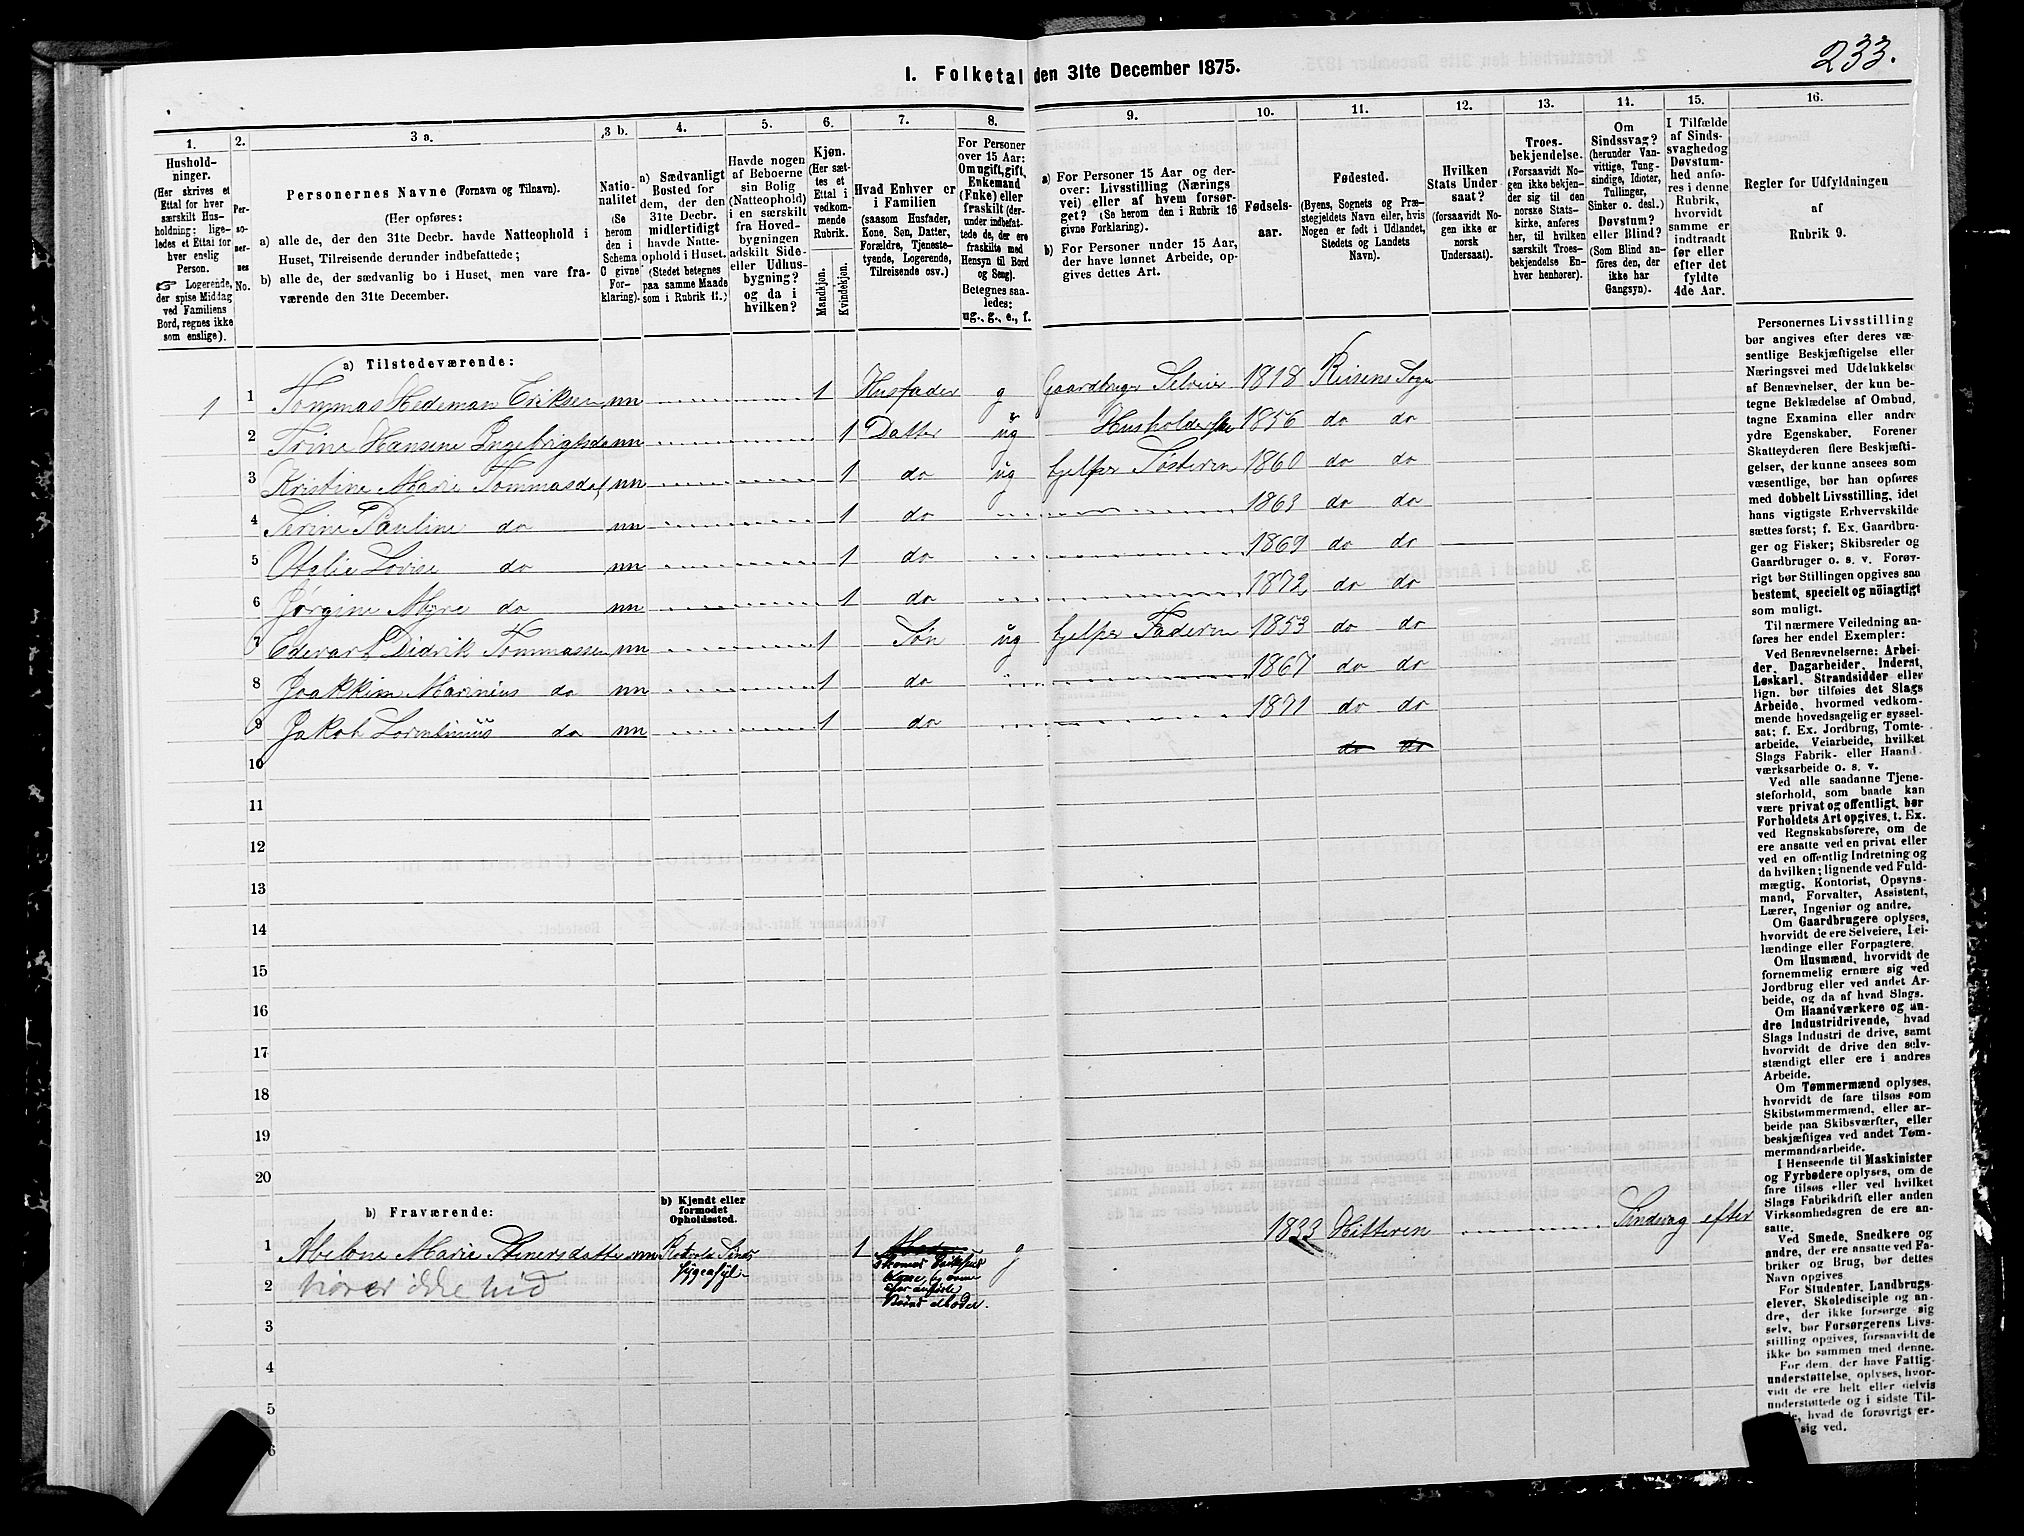 233.
1. Folketal den 31te December 1875.
1. 2. 3 a. 3 b. 4. 5. 6. 7. 8. 9. 10. 11. 12. 13. 14. 15. 16.
Hushold-
ninger.
(Her skrives et
Ettal for hver
særskilt Hus-
holdning; lige-
ledes et Ettal for
hver enslig
Person.
☞ Logerende,
der spise Middag
ved Familiens
Bord, regnes ikke
som enslige).
Per-
so-
ner-
nes
No.
Personernes Navne (Fornavn og Tilnavn).
(Her opføres:
a) alle de, der den 31te Decbr. havde Natteophold i
Huset, Tilreisende derunder indbefattede;
b) alle de, der sædvanlig bo i Huset, men vare fra-
værende den 31te December.
Natio-
nalitet
(Se
herom
den i
Schema
C givne
For-
klaring).
a) Sædvanligt
Bosted for
dem, der den
31te Decbr.
midlertidigt
havde Natte-
ophold i Huset.
(Stedet betegnes
paa samme Maade
som i Rubrik 11.)
Havde nogen
af Beboerne
sin Bolig
(Natteophold)
i en særskilt
fra Hoved-
bygningen
adskilt Side-
eller Udhus-
bygning?
og da i
hvilken?
Kjøn.
(Her sæt-
tes et
Ettal i
vedkom-
mende
Rubrik.
Mandkjøn.
Kvindekjøn.
Hvad Enhver er
i Familien
(saasom Husfader,
Kone, Søn, Datter,
Forældre, Tjeneste-
tyende, Logerende,
Tilreisende osv.)
For Personer
over 15 Aar:
Om ugift, gift,
Enkemand
(Enke) eller
fraskilt (der-
under indbefat-
tede de, der ere
fraskilte med
Hensyn til Bord
og Seng).
Betegnes saa-
ledes:
ug., g., e., f.
a) For Personer 15 Aar og der-
over: Livsstilling (Nærings
vei) eller af hvem forsør-
get? (Se herom den i Rubrik 16
givne Forklaring).
b) For Personer under 15 Aar,
der have lønnet Arbeide, op-
gives dettes Art.
Fødsels-
aar.
Fødested.
(Byens, Sognets og Præ-
stegjeldets Navn eller, hvis
Nogen er født i Udlandet,
Stedets og Landets
Navn).
Hvilken
Stats Under-
saat?
(forsaavidt No-
gen ikke er
norsk
Undersaat).
Troes-
bekjendelse.
(Forsaavidt No-
gen ikke bekjen-
der sig til den
norske Stats-
kirke, anføres
her, til hvilken
særskilt Troes-
bekjendelse En-
hver henhører).
Om
Sindssvag?
(herunder Van-
vittige, Tung-
sindige, Idioter,
Tullinger,
Sinker o. desl.)
Døvstum?
eller Blind?
(Som Blind an-
føres den, der
ikke har
Gangsyn).
I Tilfælde
af Sinds-
svaghed og
Døvstum-
hed anfø-
res i denne
Rubrik,
hvorvidt
samme er
indtraadt
før eller
efter det
fyldte
4de Aar.
Regler for Udfyldningen
af
Rubrik 9.
a) Tilstedeværende:
1 1 Tommas Hedeman Eriksen nn 1 Husfader g Gaardbruger Selveier 1818 Reisens Sogn
2 Trine Hansene Ingebrigtsda nn 1 Datter ug Husholderske 1856 do do
3 Kristine Marie Tommasda nn 1 do ug hjelper Søsteren 1860 do do
4 Serine Pauline do nn 1 do 1863 do do
5 Otelie Lovise do nn 1 do 1869 do do
6 Jørgine Myre do nn 1 do 1872 do do
7 Edevart Didrik Tommassen nn 1 Søn ug hjelper Faderen 1853 do do
8 Joakkim Marinius do nn 1 do 1867 do do
9 Jakob Lorentinius do nn 1 do 1871 do do
10 do do
11
12
13
14
15
16
17
18
19
20
b) Fraværende:
b) Kjendt eller
formodet
Opholdssted.
1 Abelone Marie Steinersdatter nn 1 g 1833 Hitteren Sindsvag efter
2 hører ikke hid
3
4
5
6
Personernes Livsstilling
bør angives efter deres væ-
sentlige Beskjæftigelse eller
Næringsvei med Udelukkelse
af Benævnelser, der kun be-
tegne Beklædelse af Ombud,
tagne Examina eller andre
ydre Egenskaber. Forener
Skatteyderen flere Beskjæfti-
gelser, der kunne ansees som
væsentlige, bør han opføres
med dobbelt Livsstilling, idet
hans vigtigste Erhvervskilde
sættes først; f. Ex. Gaardbru-
ger og Fisker; Skibsreder og
Gaardbruger o. s. v. Forøv-
rigt bør Stillingen opgives saa
bestemt, specielt og nöiagtigt
som muligt.
Til nærmere Veiledning an-
føres her endel Exempler:
Ved Benævnelserne: Arbei-
der, Dagarbeider, Inderst,
Løskarl, Strandsidder eller
lign. bør tilføies det Slags
Arbeide, hvormed vedkom-
mende hovedsagelig er syssel-
sat; f. Ex. Jordbrug, Tomte-
arbeide, Veiarbeide, hvilket
Slags Fabrik- eller Haand-
værksarbeide o. s. v.
Ved alle saadanne Tjene-
steforhold, som baade kan
være privat og offentligt, bør
Forholdets Art opgives, t. Ex.
ved Regnskabsførere, om de
ere ansatte ved en privat eller
ved en offentlig Indretning og
da hvilken; lignende ved Fuld-
mægtig, Kontorist, Opsyns-
mand, Forvalter, Assistent,
Lærer, Ingeniør og andre.
Om Gaardbrugere oplyses,
hvorvidt de ere Selveiere, Lei-
lændinge eller Forpagtere.
Om Husmænd, hvorvidt de
fornemmelig ernære sig ved
Jordbrug eller ved andet Ar-
beide, og da af hvad Slags.
Om Haandværkere og an-
dre Industridrivende, hvad
Slags Industri de drive, samt
hvorvidt de drive den selv-
stændigt eller ere i andres
Arbeide.
Om Tømmermænd oplyses,
hvorvidt de fare tilsøs som
Skibstømmermænd, eller ar-
beide paa Skibsværfter, eller
beskjæftiges ved andet Tøm-
mermandarbeide.
I Henseende til Maskinister
og Fyrbødere oplyses, om de
fare tilsøs eller ved hvilket
Slags Fabrikdrift eller anden
Virksomhedsgren de ere an-
satte.
Ved Smede, Snedkere og
andre, der ere ansatte ved Fa-
briker og Brug, bør dettes
Navn opgives.
For Studenter, Landbrugs-
elever, Skoledisciple og an-
dre, der ikke forsørge sig
selv, bør Forsørgerens Livs-
stilling opgives, forsaavidt de
ikke bo sammen med denne.
For dem, der have Fattig-
understøttelse, oplyses, hvor-
vidt de ere helt eller delvis
understøttede og i sidste Til-
hvad de forøvrigt er-
sig ved.